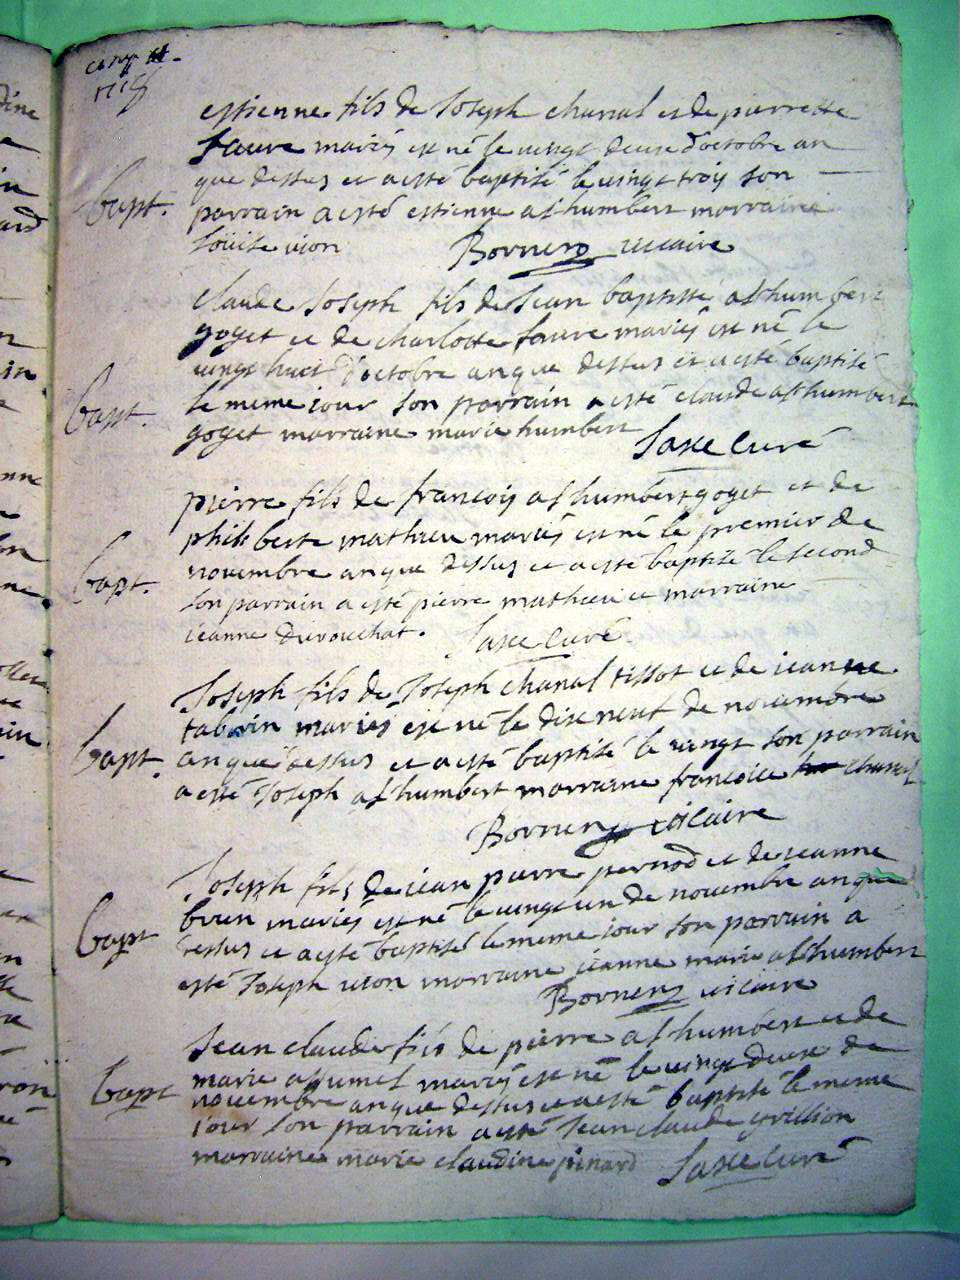 estienne fils de Joseph chanal et de pierrette
favre mariés est né le vingt deux d'octobre an
que dessus et a esté baptisé le vingt troy son
bapt.
parrain a esté estienne a s humbert marraine
loüise vion Borneny vicaire
claude Joseph fils de Jean baptiste a s humbert
goget et de charlotte favre mariés est né le
vingt huit d'octobre an que dessus et a esté baptisé
bapt.
le meme iour son parrain a esté claude a s humbert
goget marraine marie humbert Saxe Curé
pierre fils de francois a s humbert goget et de
philiberte mathieu mariés est né le premier de
novembre an que dessus et a esté baptisé le second
bapt.
son parrain a esté pierre mathieu et marraine
ieanne duvouchat. Saxe Curé
Joseph fils de Joseph chanal tissot et de ieanne
tabovin mariés est né le dix neuf de novembre
bapt.
an que dessus et a esté baptisé le vingt son parrain
a esté Joseph a s humbert marraine francoise chanal
Borneny vicaire
Joseph fils de iean pierre pernod et de ieanne
brun mariés est né le vingt un de novembre an que
bapt
dessus et a esté baptisé le meme iour son parrain a
esté Joseph vion marraine ieanne marie a s humbert
Borneny vicaire
Jean claude fils de pierre a s humbert et de
marie mariés est né le vingt deux de
bapt
novembre an que dessus et a esté baptisé le meme
iour son parrain a esté Jean claude grillion
marraine marie claudine pinard Saxe Curé